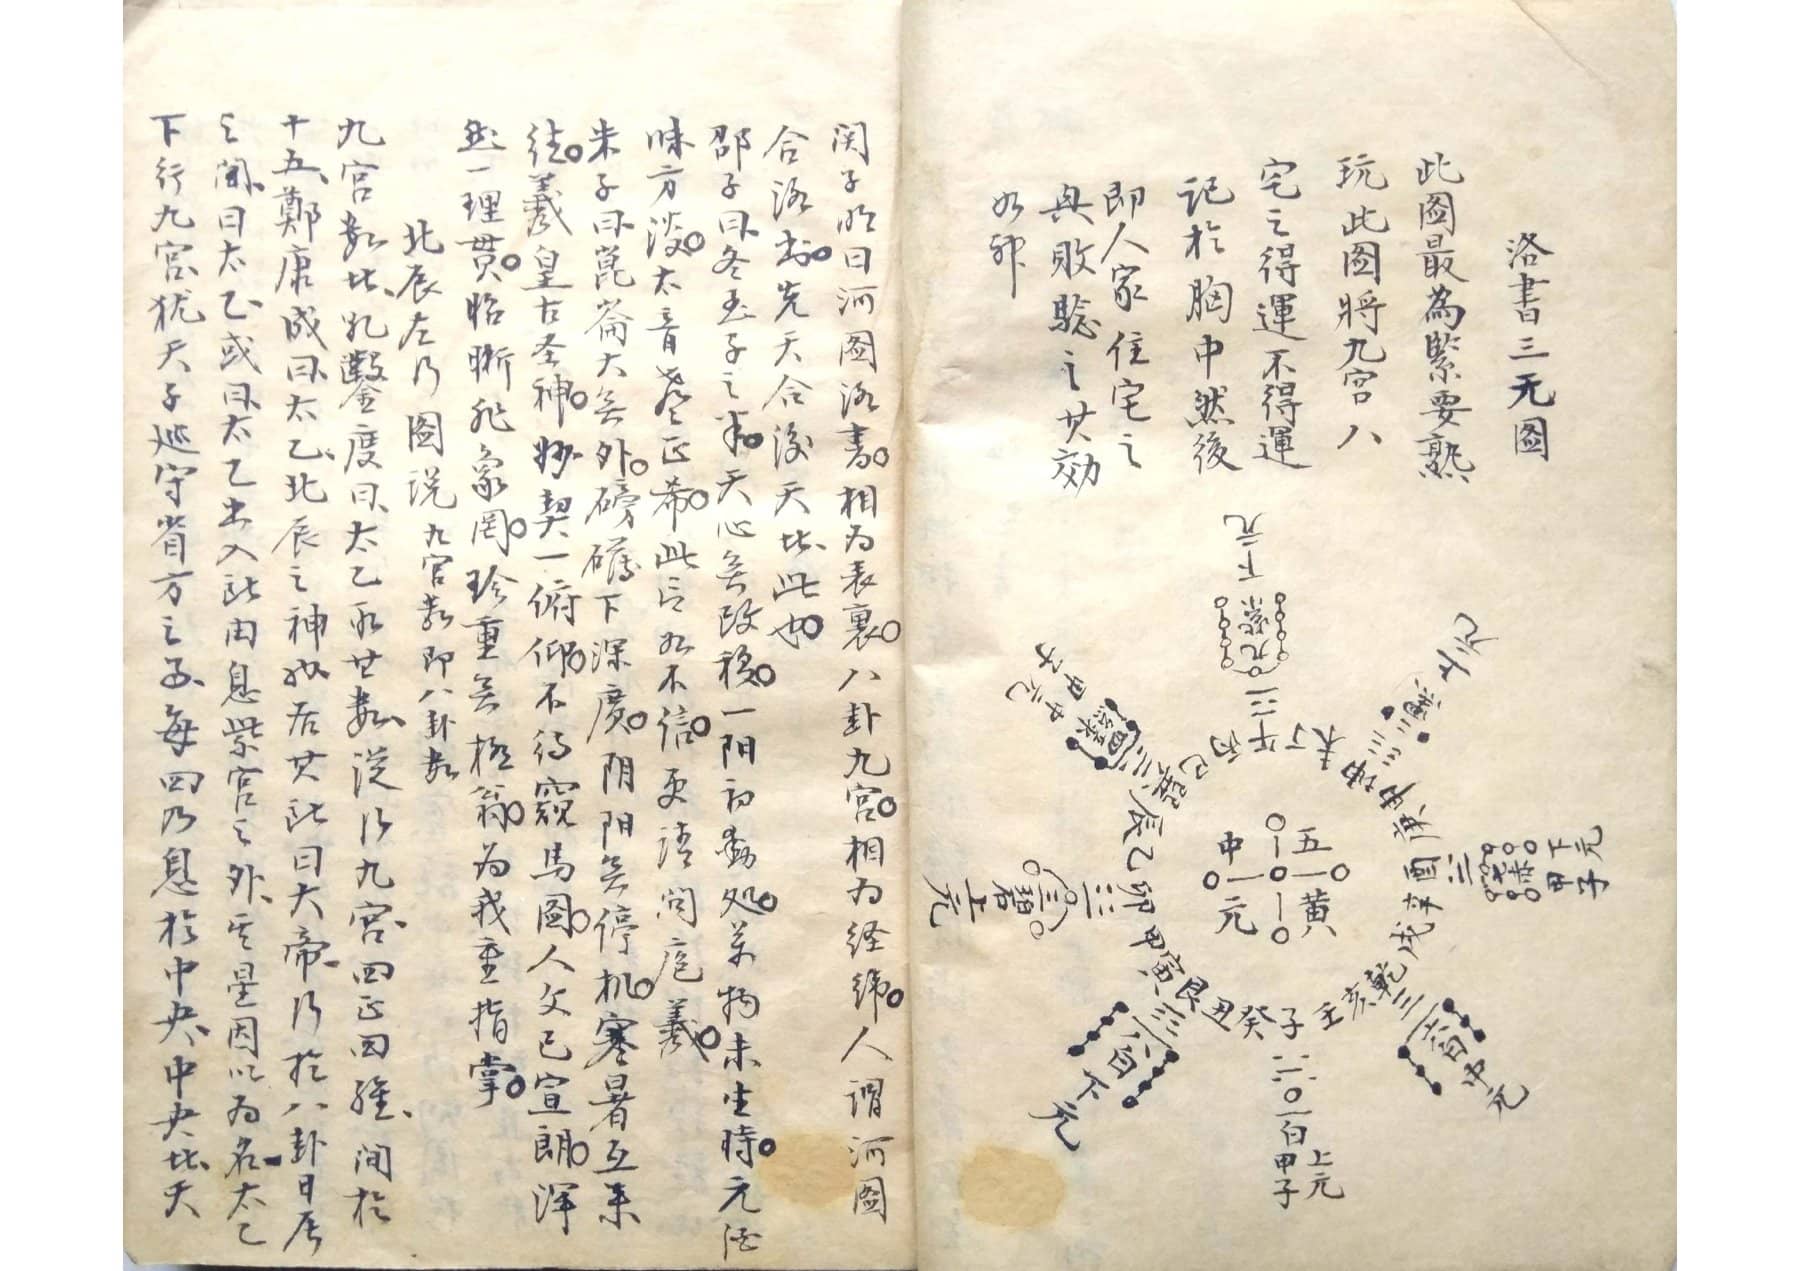 洛書三元图
此图最為緊要熟
玩此图將九宮八
宅之得運不得運
記於胸中然後
即人家住宅之
興敗驗之其効
如神
九紫下元
四綠中元甲子
二黑上元
午丁未坤申庚酉辛戌乾亥壬子癸丑艮寅甲卯乙辰巽巳丙
五黄
中元
三碧上元
七赤下元甲子
八白下元
六白中元
一白上元甲子
関子明曰河图洛書相为表裏八卦九宮相为经纬人謂河图
合洛书先天合後天者此也
邵子曰冬至子之半天心無改移一阳初動处萬物未生時元酒
味方淡太音声正希此言如不信更請问庖羲
朱子曰崑崙大無外磅礴下深廣阴阳無停机寒暑互来
往羲皇古圣神妙契一俯仰不待窺馬图人文已宣朗渾
然一理贯昭晰非象罔珍重無極翁为我重指掌
北辰左行图説 九宮数即八卦数
九宮数者乾鑿度曰太乙取其数以行九宮四正四維间於
十五鄭康成曰太乙北辰之神也居其所曰大帝行於八卦日辰
之间曰太乙或曰太乙出入所由息紫宮之外其星因以为名太乙
下行九宮犹天子巡守省方之事每四乃息於中央中央者天